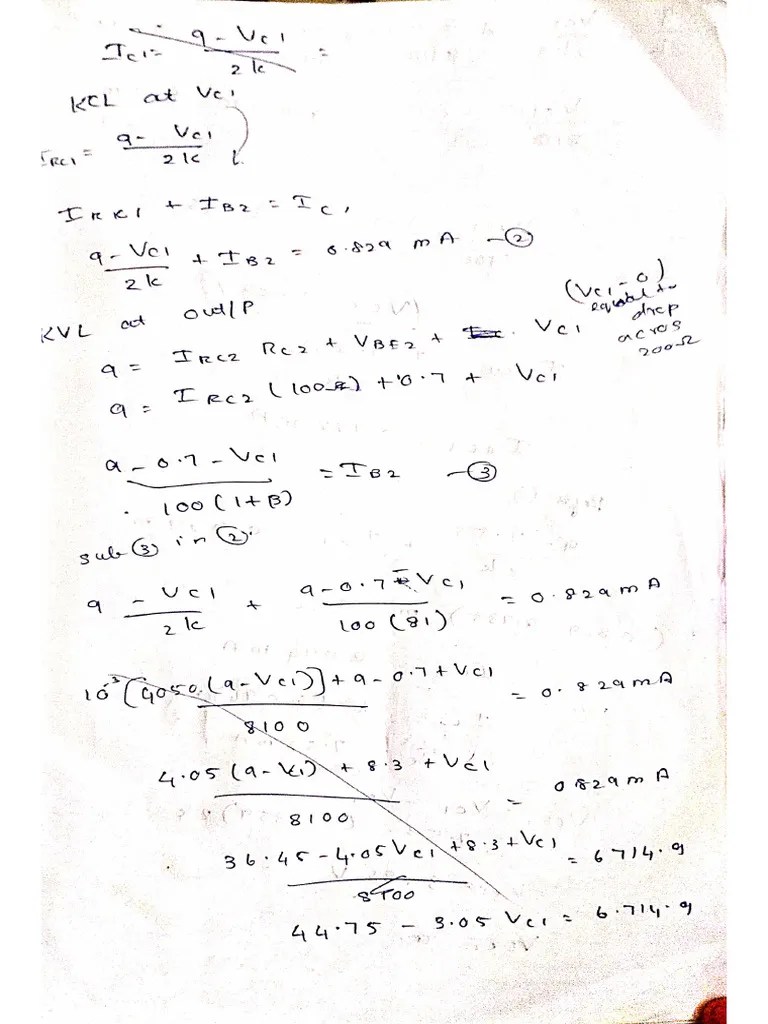 I_C1 = (9 - V_C1) / 2k =
KCL at V_C1
I_RC1 = (9 - V_C1) / 2k
I_RK1 + I_B2 = I_C1
(9 - V_C1) / 2k + I_B2 = 0.829 mA —②
KVL at out/P
9 = I_RC2 R_C2 + V_BE2 + V_C1
(V_C1 - 0)
equal to
drop
acros
200Ω
9 = I_RC2 (100Ω) + 0.7 + V_C1
(9 - 0.7 - V_C1) / 100(1+β) = I_B2 —③
sub ③ in ②.
(9 - V_C1) / 2k + (9 - 0.7 - V_C1) / 100(81) = 0.829 mA
(10^-3 [4050 (9 - V_C1)] + 9 - 0.7 + V_C1) / 8100 = 0.829 mA
(4.05 (9 - V_C1) + 8.3 + V_C1) / 8100 = 0.829 mA
(36.45 - 4.05 V_C1 + 8.3 + V_C1) / 8100 = 6714.9
44.75 - 3.05 V_C1 = 6.714.9